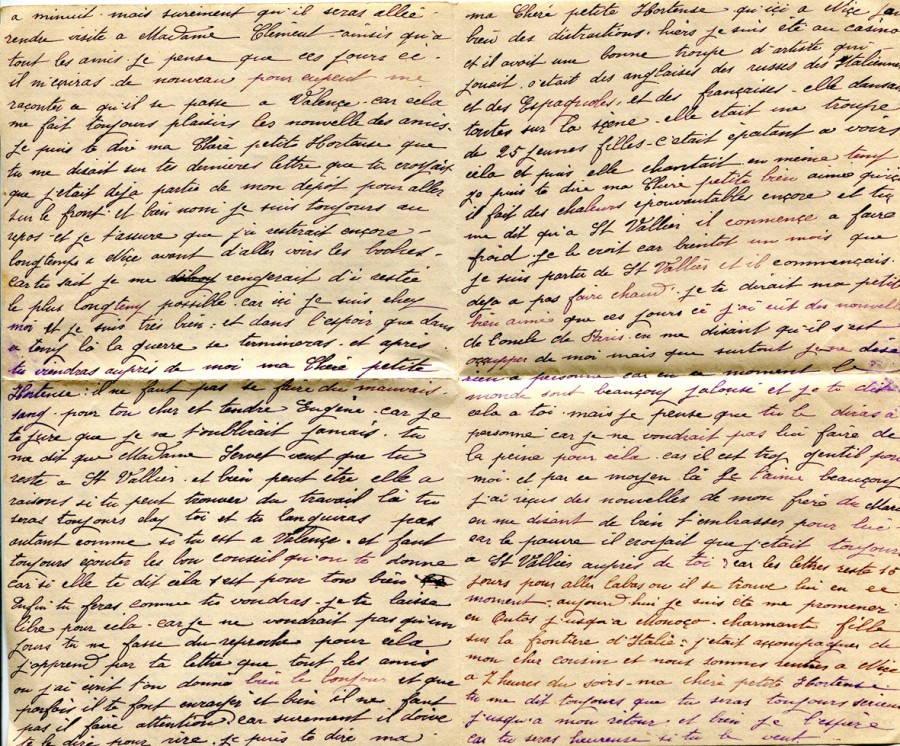 a minuit mais surement qu'il seras allée
rendre visite a Madame Clément ainsis qu'a
tout les amis je pense que ces jours ci
il m'écriras de nouveau pour me
raconter ce qu'il se passe a Valence car cela
me fait toujours plaisirs les nouvelle des amis.
Je puis te dire ma Chère petite Hortense que
tu me disait sur tes dernieres lettre que tu croyais
que j'etait deja partie de mon depôt pour aller
sur le front et bien nom je suis toujours au
repos et je t'assure que j'ai resterait encore
longtemps a Nice avant d'aller voirs les boches.
car tu sait je me rengerait d'i restée
le plus longtemp possible car ici je suis chez
moi et je suis très bien et dans l'espoir que dans
a temp là la guerre se termineras et apres
tu viendras auprès de moi ma Chère petite
Hortense il ne faut pas se faire du mauvais
sang pour ton cher et tendre Eugène car je
te jure que je ne t'oublirait jamais tu
ma dit que Madame Servet veut que tu
reste a St Vallier et bien peut être elle a
raisons si tu peut trouver du travail là tu
seras toujours chez toi et tu languiras pas
autant comme si tu est a Valence et faut
toujours écouter les bon conseil qu'on te donne
car si elle te dit cela s'est pour ton bien
Enfin tu feras comme tu voudras je te laisse
libre pour cela car je ne voudrait pas qu'un
jours tu me fasse du reproche pour cela
j'apprend par ta lettre que tout les amis
ou j'ai écrit t'on donné bien le bonjour et que
parfois il te font enrager et bien il ne faut
pas il faire attention car surement il doive
te le dire pour rire je puis te dire ma
ma Cheré petite Hortense qu'ici a Nice
bien des distractions hiers je suis été au casino
et il avoit une bonne troupe d'artiste qui
jouait c'etait des anglaises des russes des Italiennes
et des Espagnoles et des françaises elle dansait
toutes sur la scene elle etait une troupe
de 25 jeunes filles c'était epatant a voirs
cela et puis elle chantait en meme temp
je puis te dire ma Chere petite bien aimé qu'ici
il fait des chaleurs epouventables encore et tu
me dit qu'a St Vallier il commençe a faire
froid je le croit car bientot un mois que
je suis partie de St Vallier et il commençais
deja a pas faire chaud je te dirait ma petite
bien aimé que ces jours ci j'ai eut des nouvelle
de L'oncle de Paris en me disant qu'il s'est
occupper de moi mais que surtout je ne dise
rien a personne car en ce moment le
monde sont beaucoup jalousé et je te dise
cela a toi mais je pense que tu le diras a
personne car je ne voudrait pas lui faire de
la peine pour cela car il est trop gentil pour
moi et par ce moyen là je l'aime beaucoup
j'ai reçus des nouvelles de mon frère
en me disant de bien t'embrasser pour lui
car le pauvre il croyait que j'etait toujours
a St Vallier auprès de toi car les lettres reste 15
jours pour aller labas ou il se trouve lui en ce
moment aujourd'hui je suis été me promener
en autos j'usqu'a Monoco charmante fille
sur la frontière d'Italie j'etait accompagner de
mon cher cousin et nous sommes rentrer a Nice
a 7 heures du soirs ma cheré petite Hortense
tu me dit toujours que tu seras toujours serieuse
j'usqu'a mon retour et bien je l'espere
car tu seras heureuse si tu le veut